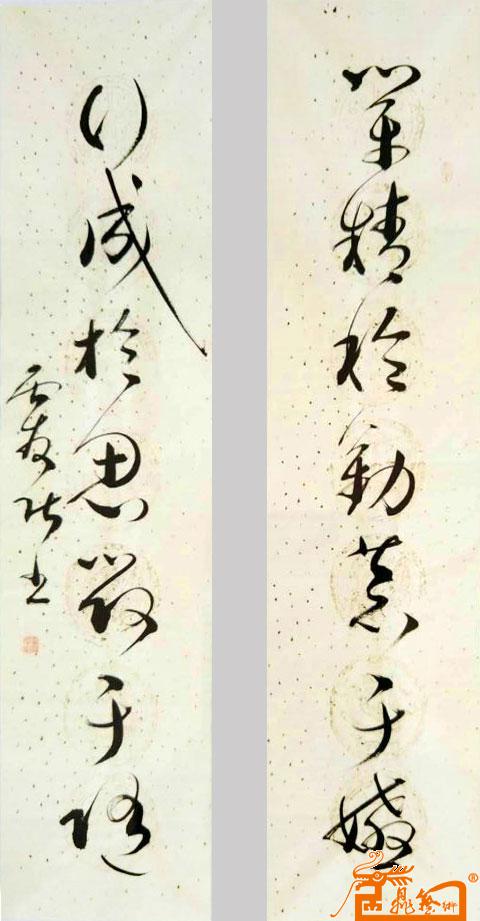 業精於勤荒于嬉
行成於思毀于隨